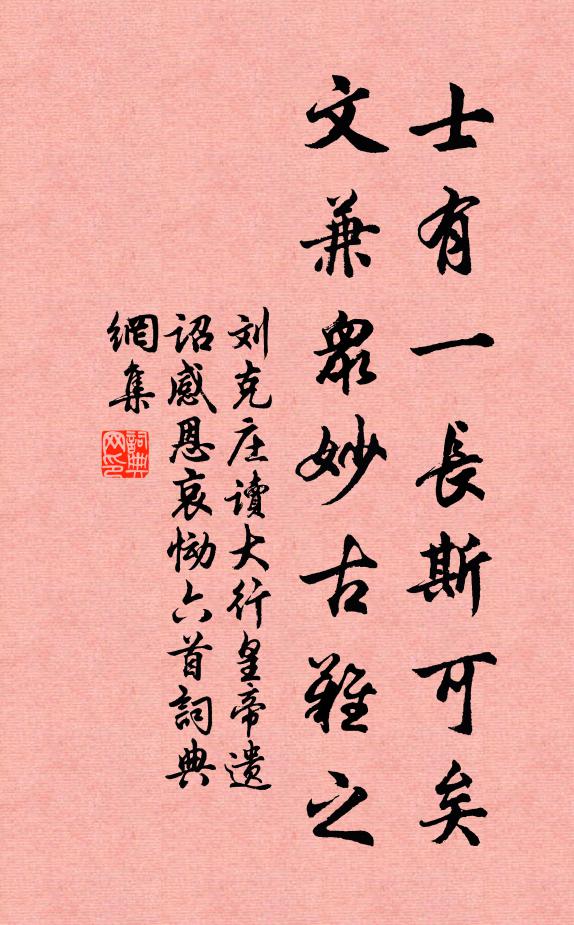 士有一長斯可矣
文兼眾妙古難之
刘克庄讀大行皇帝遗
詔感恩哀慟六首詞典
網集
詞典
网印